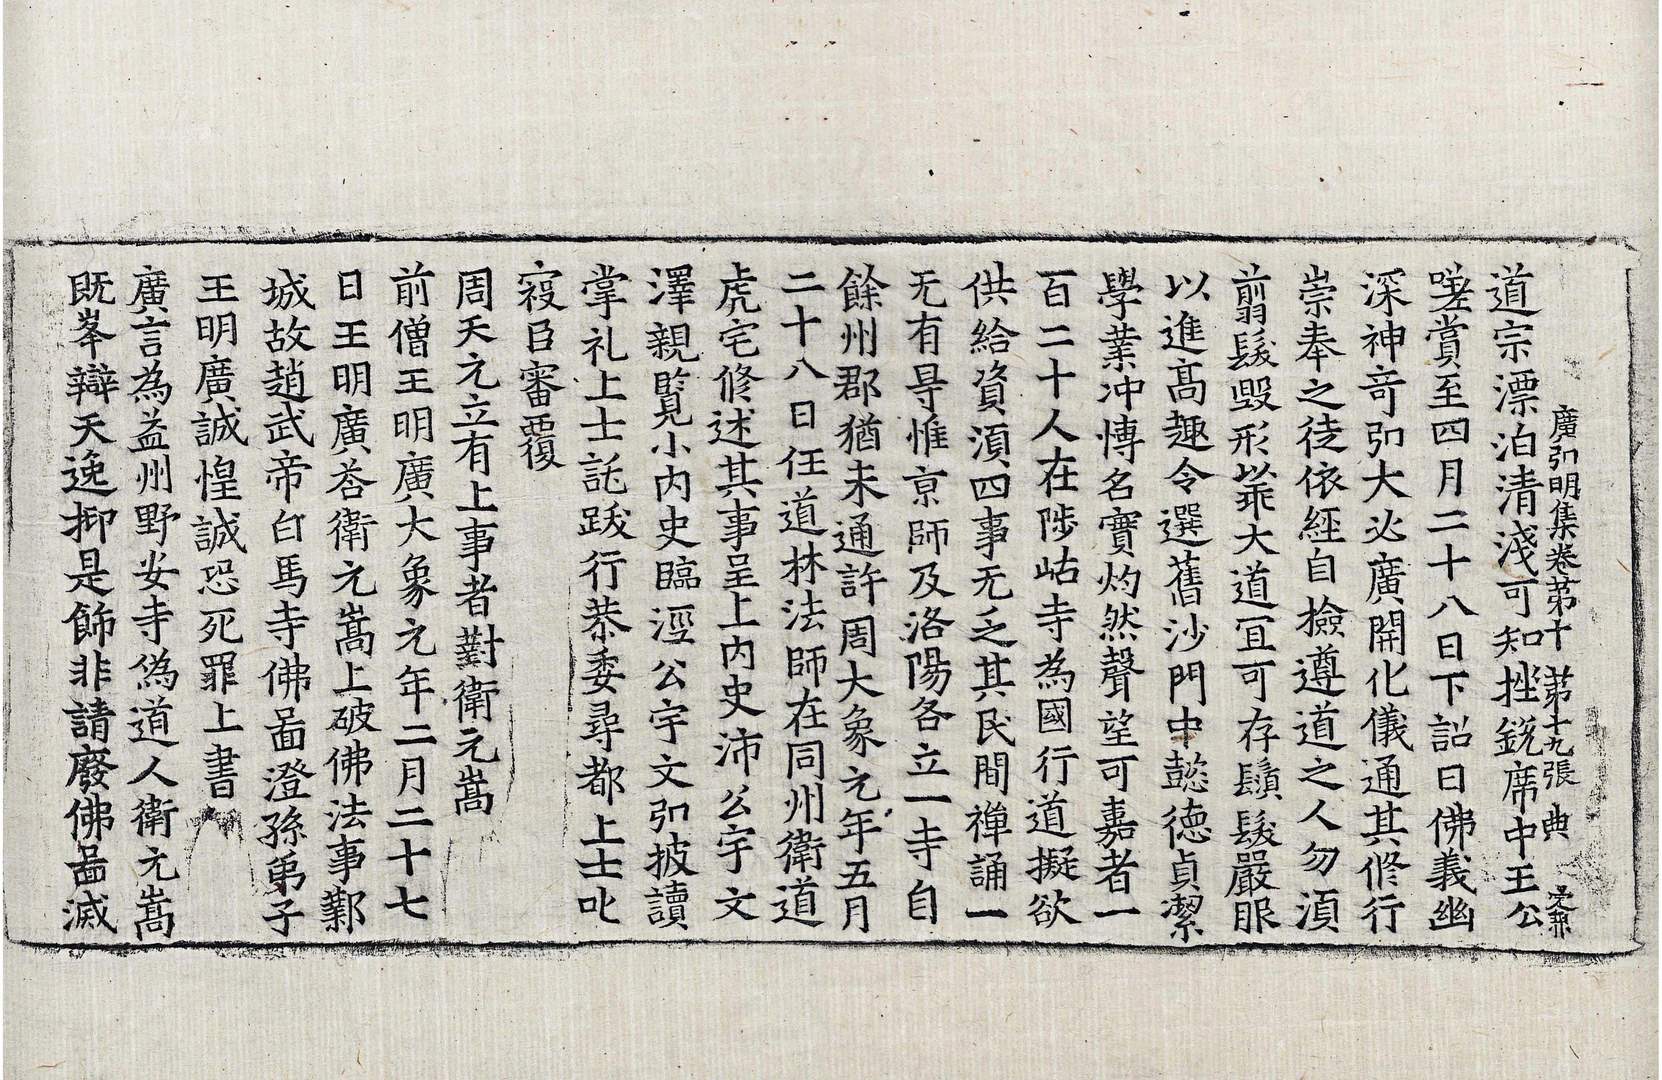 廣弘明集卷苐十　苐十九張　典
道宗漂泊清淺可知挫銳席中王公
嗟賞至四月二十八日下詔曰佛義幽
深神竒弘大必廣開化儀通其修行
崇奉之徒依經自撿遵道之人勿湏
翦髮毀形以乖大道宜可存鬚髮嚴服
以進髙趣令選舊沙門中懿德貞潔
學業冲博名實灼然聲望可嘉者一
百二十人在陟岵寺為國行道擬欲
供給資湏四事无乏其民間禪誦一
无有㝵惟京師及洛陽各立一寺自
餘州郡猶未通許周大象元年五月
二十八日任道林法師在同州衛道
虎宅修述其事呈上内史沛公宇文
澤親覧小内史臨涇公宇文弘披讀
掌礼上士託跋行恭委尋都上士叱
寇臣審覆
周天元立有上事者對衛元嵩
前僧王明廣大象元年二月二十七
日王明廣荅衛元嵩上破佛法事鄴
城故趙武帝白馬寺佛啚澄孫弟子
王明廣誠惶誠恐死罪上書
廣言為益州野安寺偽道人衛元嵩
既峯辯天逸抑是飾非請廢佛啚滅